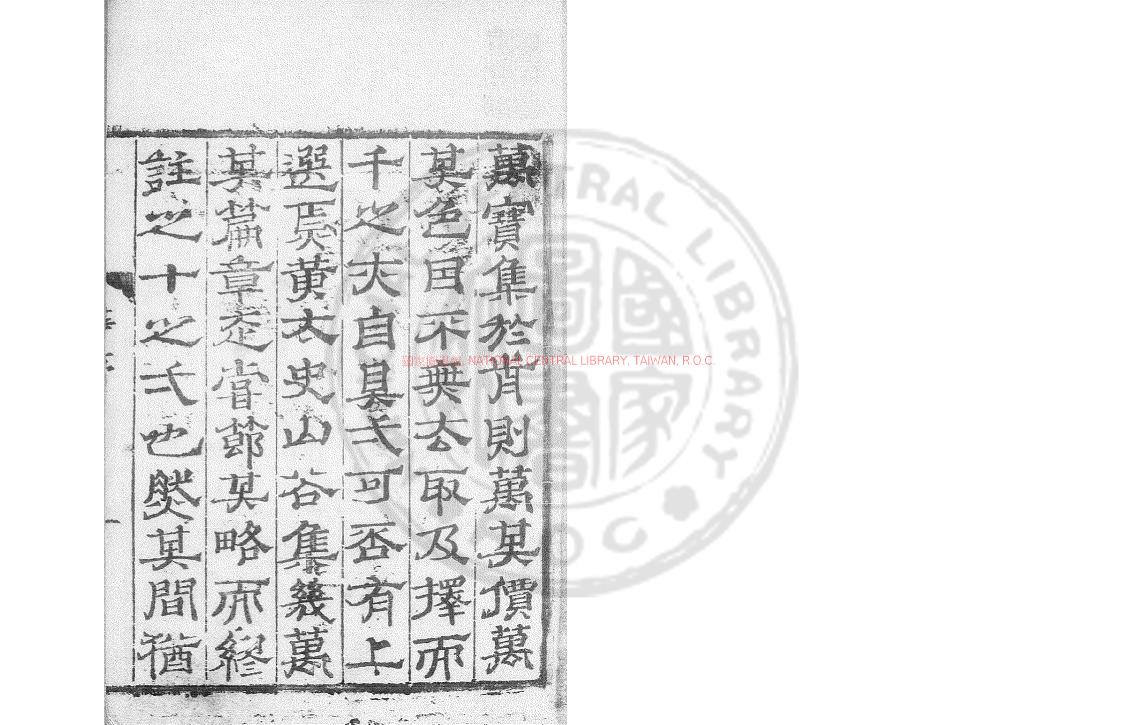 萬寶集於則萬其價萬
其色固不無去取及擇而
千之夫自具弌可否有上
選焉黃太史山谷集幾萬
其篇章嘗節其略而繆
註之十之弌也然其間猶
國家圖書館, NATIONAL CENTRAL LIBRARY, TAIWAN, R.O.C.